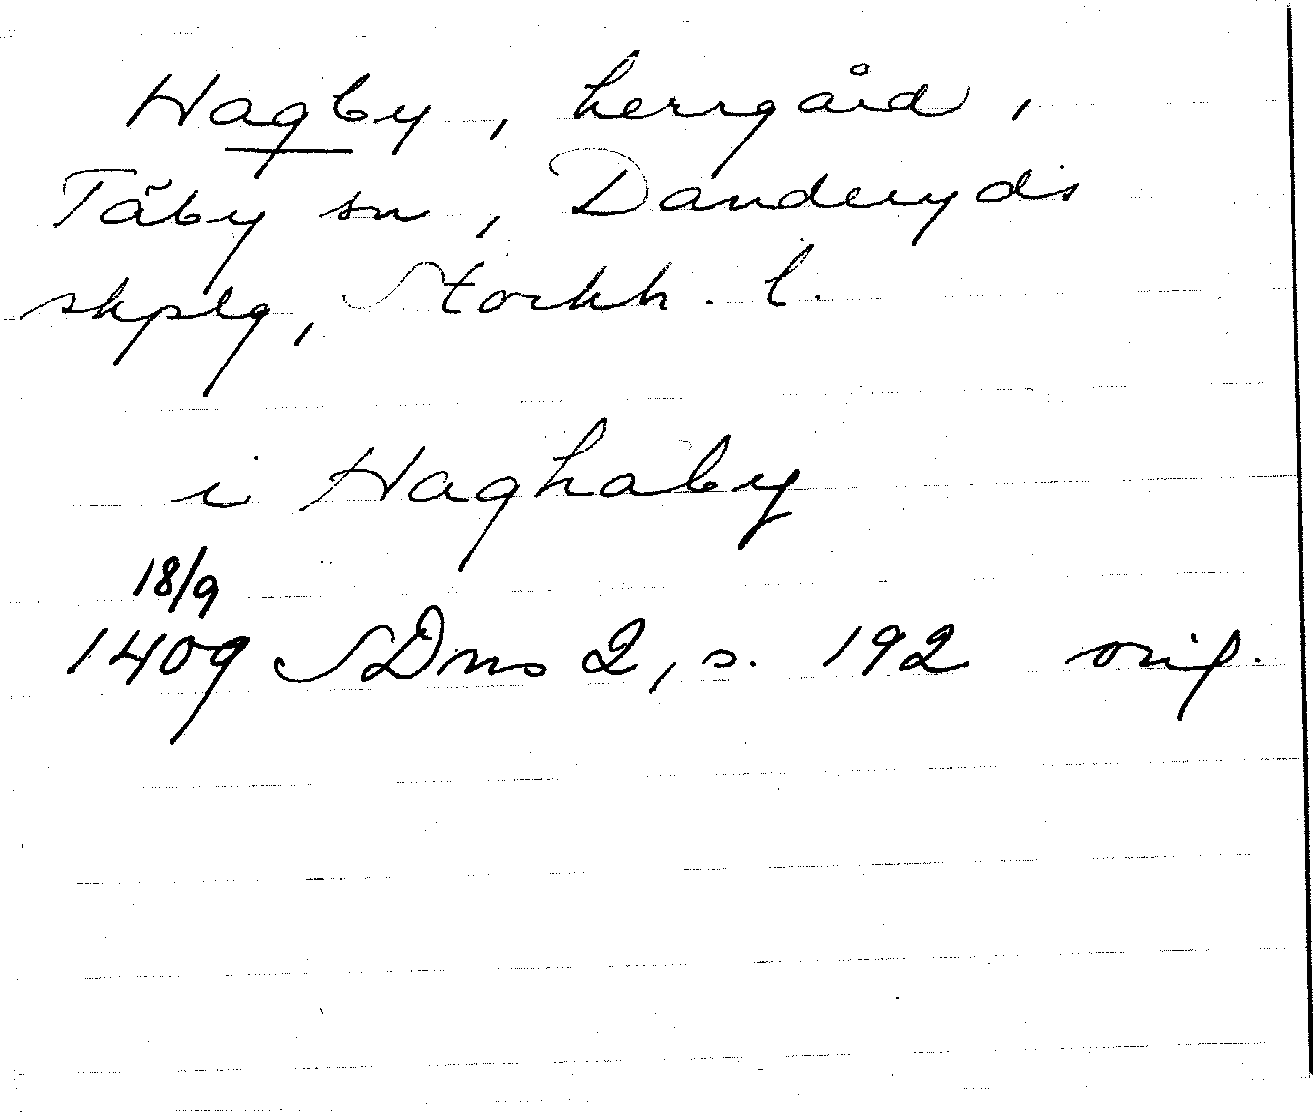 Hagby, herrgård,
Täby sn, Danderyds
skplg, Stockh. l.
i Haghaby
18/9
1409 SDns 2, s. 192 orig.